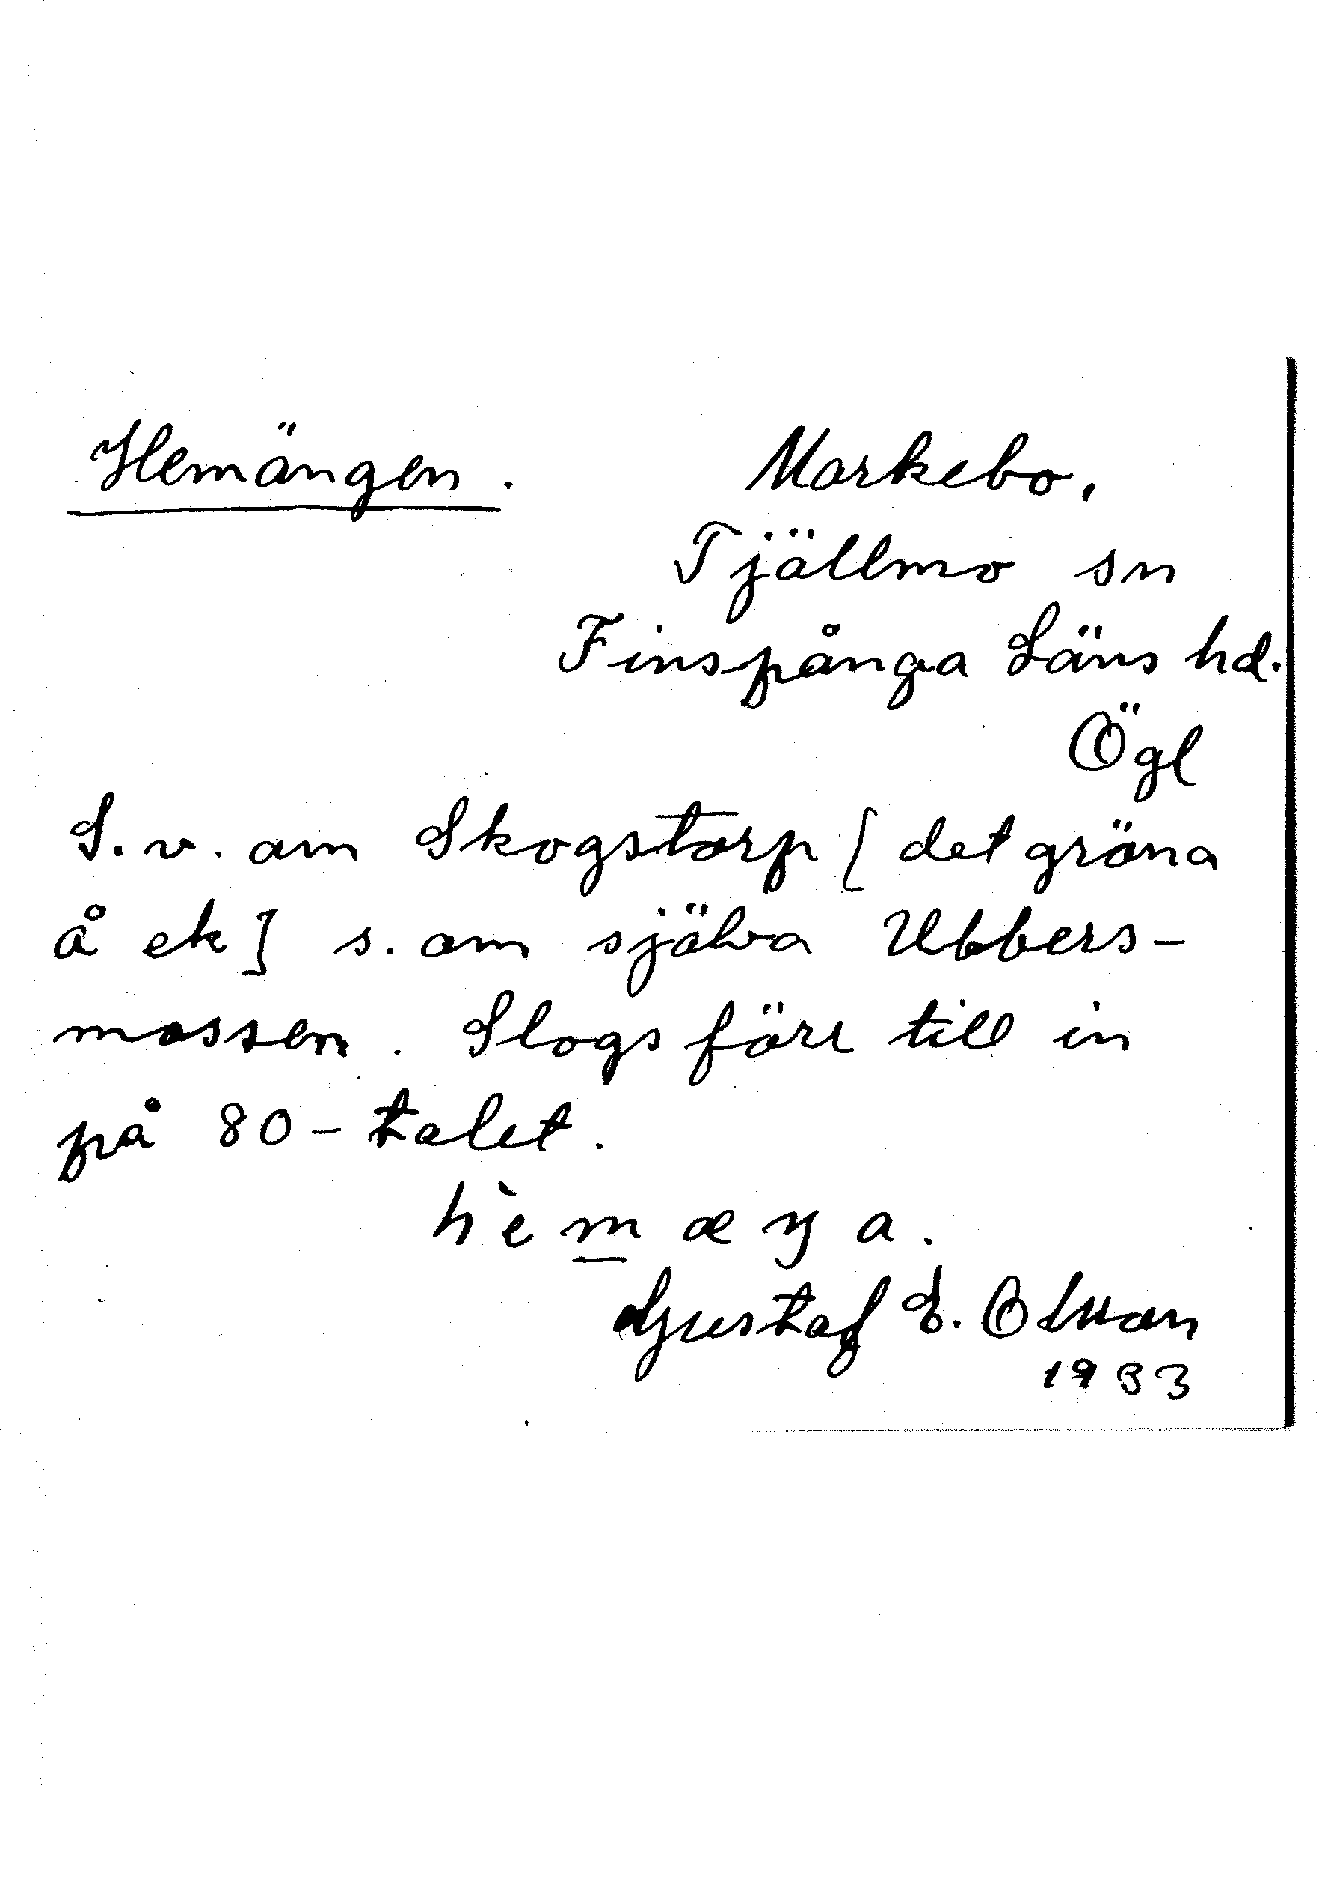 Hemängen.
Markebo,
Tjällmo sn
Finspånga Läns hd.
Ögl
S.v. om Skogstorp [det gröna
å ek] s. om själva Ubbers-
mossen. Slogs förr till in
på 80-talet.
hèmæŋa.
Gustaf E. Olsson
1933